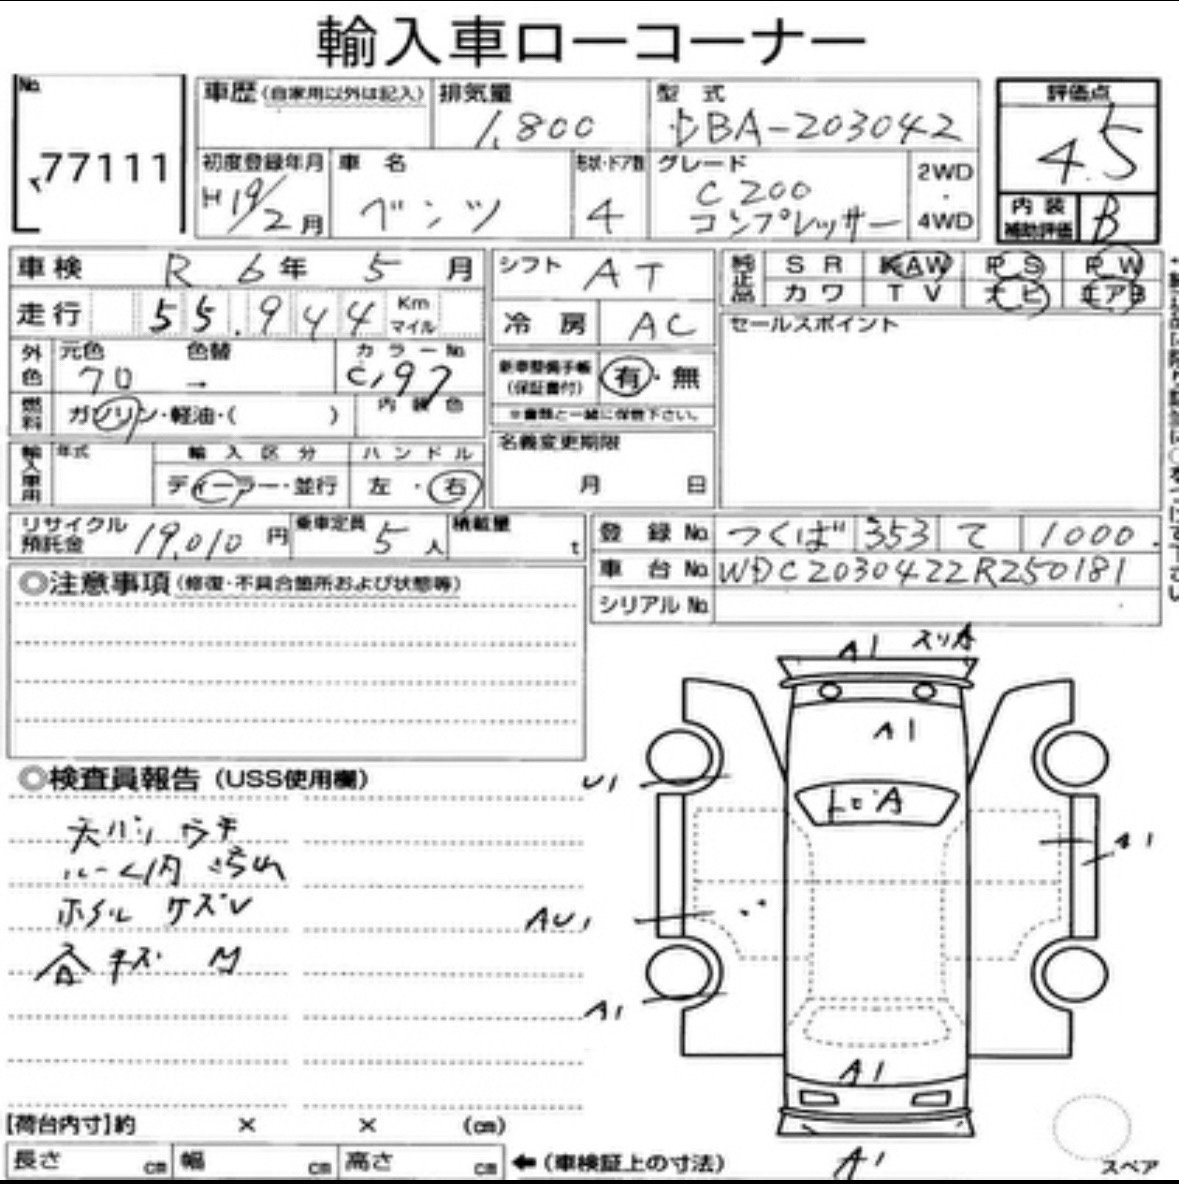 輸入車ローコーナー
No. 77111
車歴 (自家用以外は記入)
排気量 1,800
型式 DBA-203042
評価点 4.5
初度登録年月 H19/2月
車名 ベンツ
形状・ドア数 4
グレード C200 コンプレッサー
2WD ・ 4WD
内装補助評価 B
車検 R 6年 5月
シフト AT
純正品 SR KAW PS PW
カワ TV ナビ エアB
走行 55,944 Km マイル
冷房 AC
セールスポイント
外色 元色 クロ → 色替 カラーNo. C197
新車整備手帳 (保証書付) 有・無
※書類と一緒に保管下さい。
燃料 ガソリン・軽油・( ) 内装色
名義変更期限 月 日
輸入車用 年式 輸入区分 ハンドル
ディーラー・並行 左・右
リサイクル預託金 19,010円
乗車定員 5人
積載量 t
登録No. つくば 353 て 1000
車台No. WDC2030422R250181
シリアルNo.
◎注意事項 (修復・不具合箇所および状態等)
◎検査員報告 (USS使用欄)
天バリ ウキ
ルーム内 汚れ
ホイル ケズレ
キズ
A1 スリ傷
A1
U1
トビA
A1
AU1
A1
A1
A1
スペア
[荷台内寸]約 × × (cm)
長さ cm 幅 cm 高さ cm ←(車検証上の寸法)